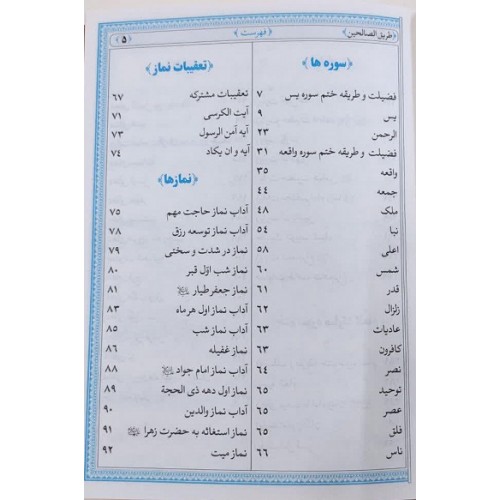 ﴿طریق الصالحین﴾
﴿فهرست﴾
﴿۵﴾
﴿سوره ها﴾
فضیلت و طریقه ختم سوره یس ۷
یس ۹
الرحمن ۲۳
فضیلت و طریقه ختم سوره واقعه ۳۱
واقعه ۳۵
جمعه ۴۴
ملک ۴۸
نبا ۵۴
اعلی ۵۸
شمس ۶۰
قدر ۶۱
زلزال ۶۲
عادیات ۶۳
کافرون ۶۳
نصر ۶۴
توحید ۶۵
عصر ۶۵
فلق ۶۵
ناس ۶۶
﴿تعقیبات نماز﴾
تعقیبات مشترکه ۶۷
آیت الکرسی ۷۱
آیه آمن الرسول ۷۳
آیه و ان یکاد ۷۴
﴿نمازها﴾
آداب نماز حاجت مهم ۷۵
آداب نماز توسعه رزق ۷۸
نماز در شدت و سختی ۷۹
نماز شب اوّل قبر ۸۰
نماز جعفر طیار ۸۱
آداب نماز اول هر ماه ۸۳
آداب نماز شب ۸۵
نماز غفیله ۸۶
آداب نماز امام جواد ۸۸
نماز اول دهه ذی الحجة ۸۹
آداب نماز والدین ۹۰
نماز استغاثه به حضرت زهرا ۹۱
نماز میت ۹۲